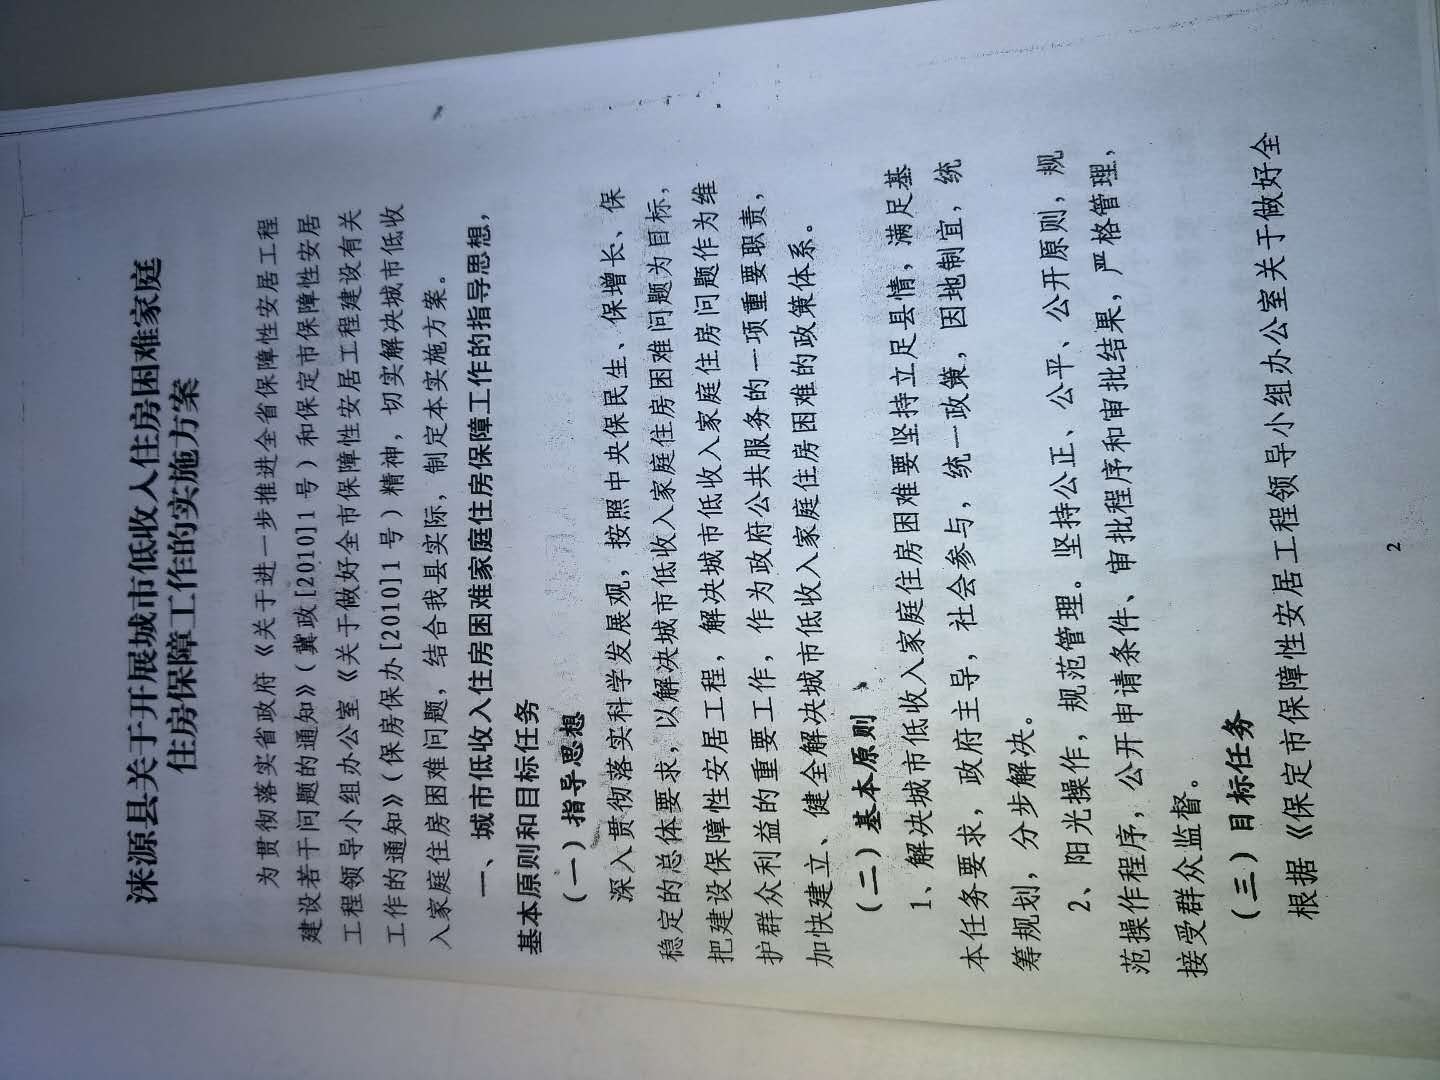 涞源县关于开展城市低收入住房困难家庭
住房保障工作的实施方案
为贯彻落实省政府《关于进一步推进全省保障性安居工程
建设若干问题的通知》（冀政[2010]1号）和保定市保障性安居
工程领导小组办公室《关于做好全市保障性安居工程建设有关
工作的通知》（保房保办[2010]1号）精神，切实解决城市低收
入家庭住房困难问题，结合我县实际，制定本实施方案。
一、城市低收入住房困难家庭住房保障工作的指导思想，
基本原则和目标任务
（一）指导思想
深入贯彻落实科学发展观，按照中央保民生、保增长、保
稳定的总体要求，以解决城市低收入家庭住房困难问题为目标，
把建设保障性安居工程，解决城市低收入家庭住房问题作为维
护群众利益的重要工作，作为政府公共服务的一项重要职责，
加快建立、健全解决城市低收入家庭住房困难的政策体系。
（二）基本原则
1、解决城市低收入家庭住房困难要坚持立足县情，满足基
本任务要求，政府主导，社会参与，统一政策，因地制宜，统
筹规划，分步解决。
2、阳光操作，规范管理。坚持公正、公平、公开原则，规
范操作程序，公开申请条件、审批程序和审批结果，严格管理，
接受群众监督。
（三）目标任务
根据《保定市保障性安居工程领导小组办公室关于做好全
2